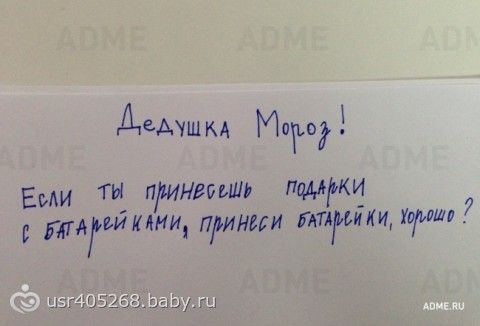 ADME ADME ADM
Дедушка Мороз!
ADME ADME ADME
Если ты принесешь подарки
с батарейками, принеси батарейки, хорошо?
ADME ADME ADM
usr405268.baby.ru
ADME.RU